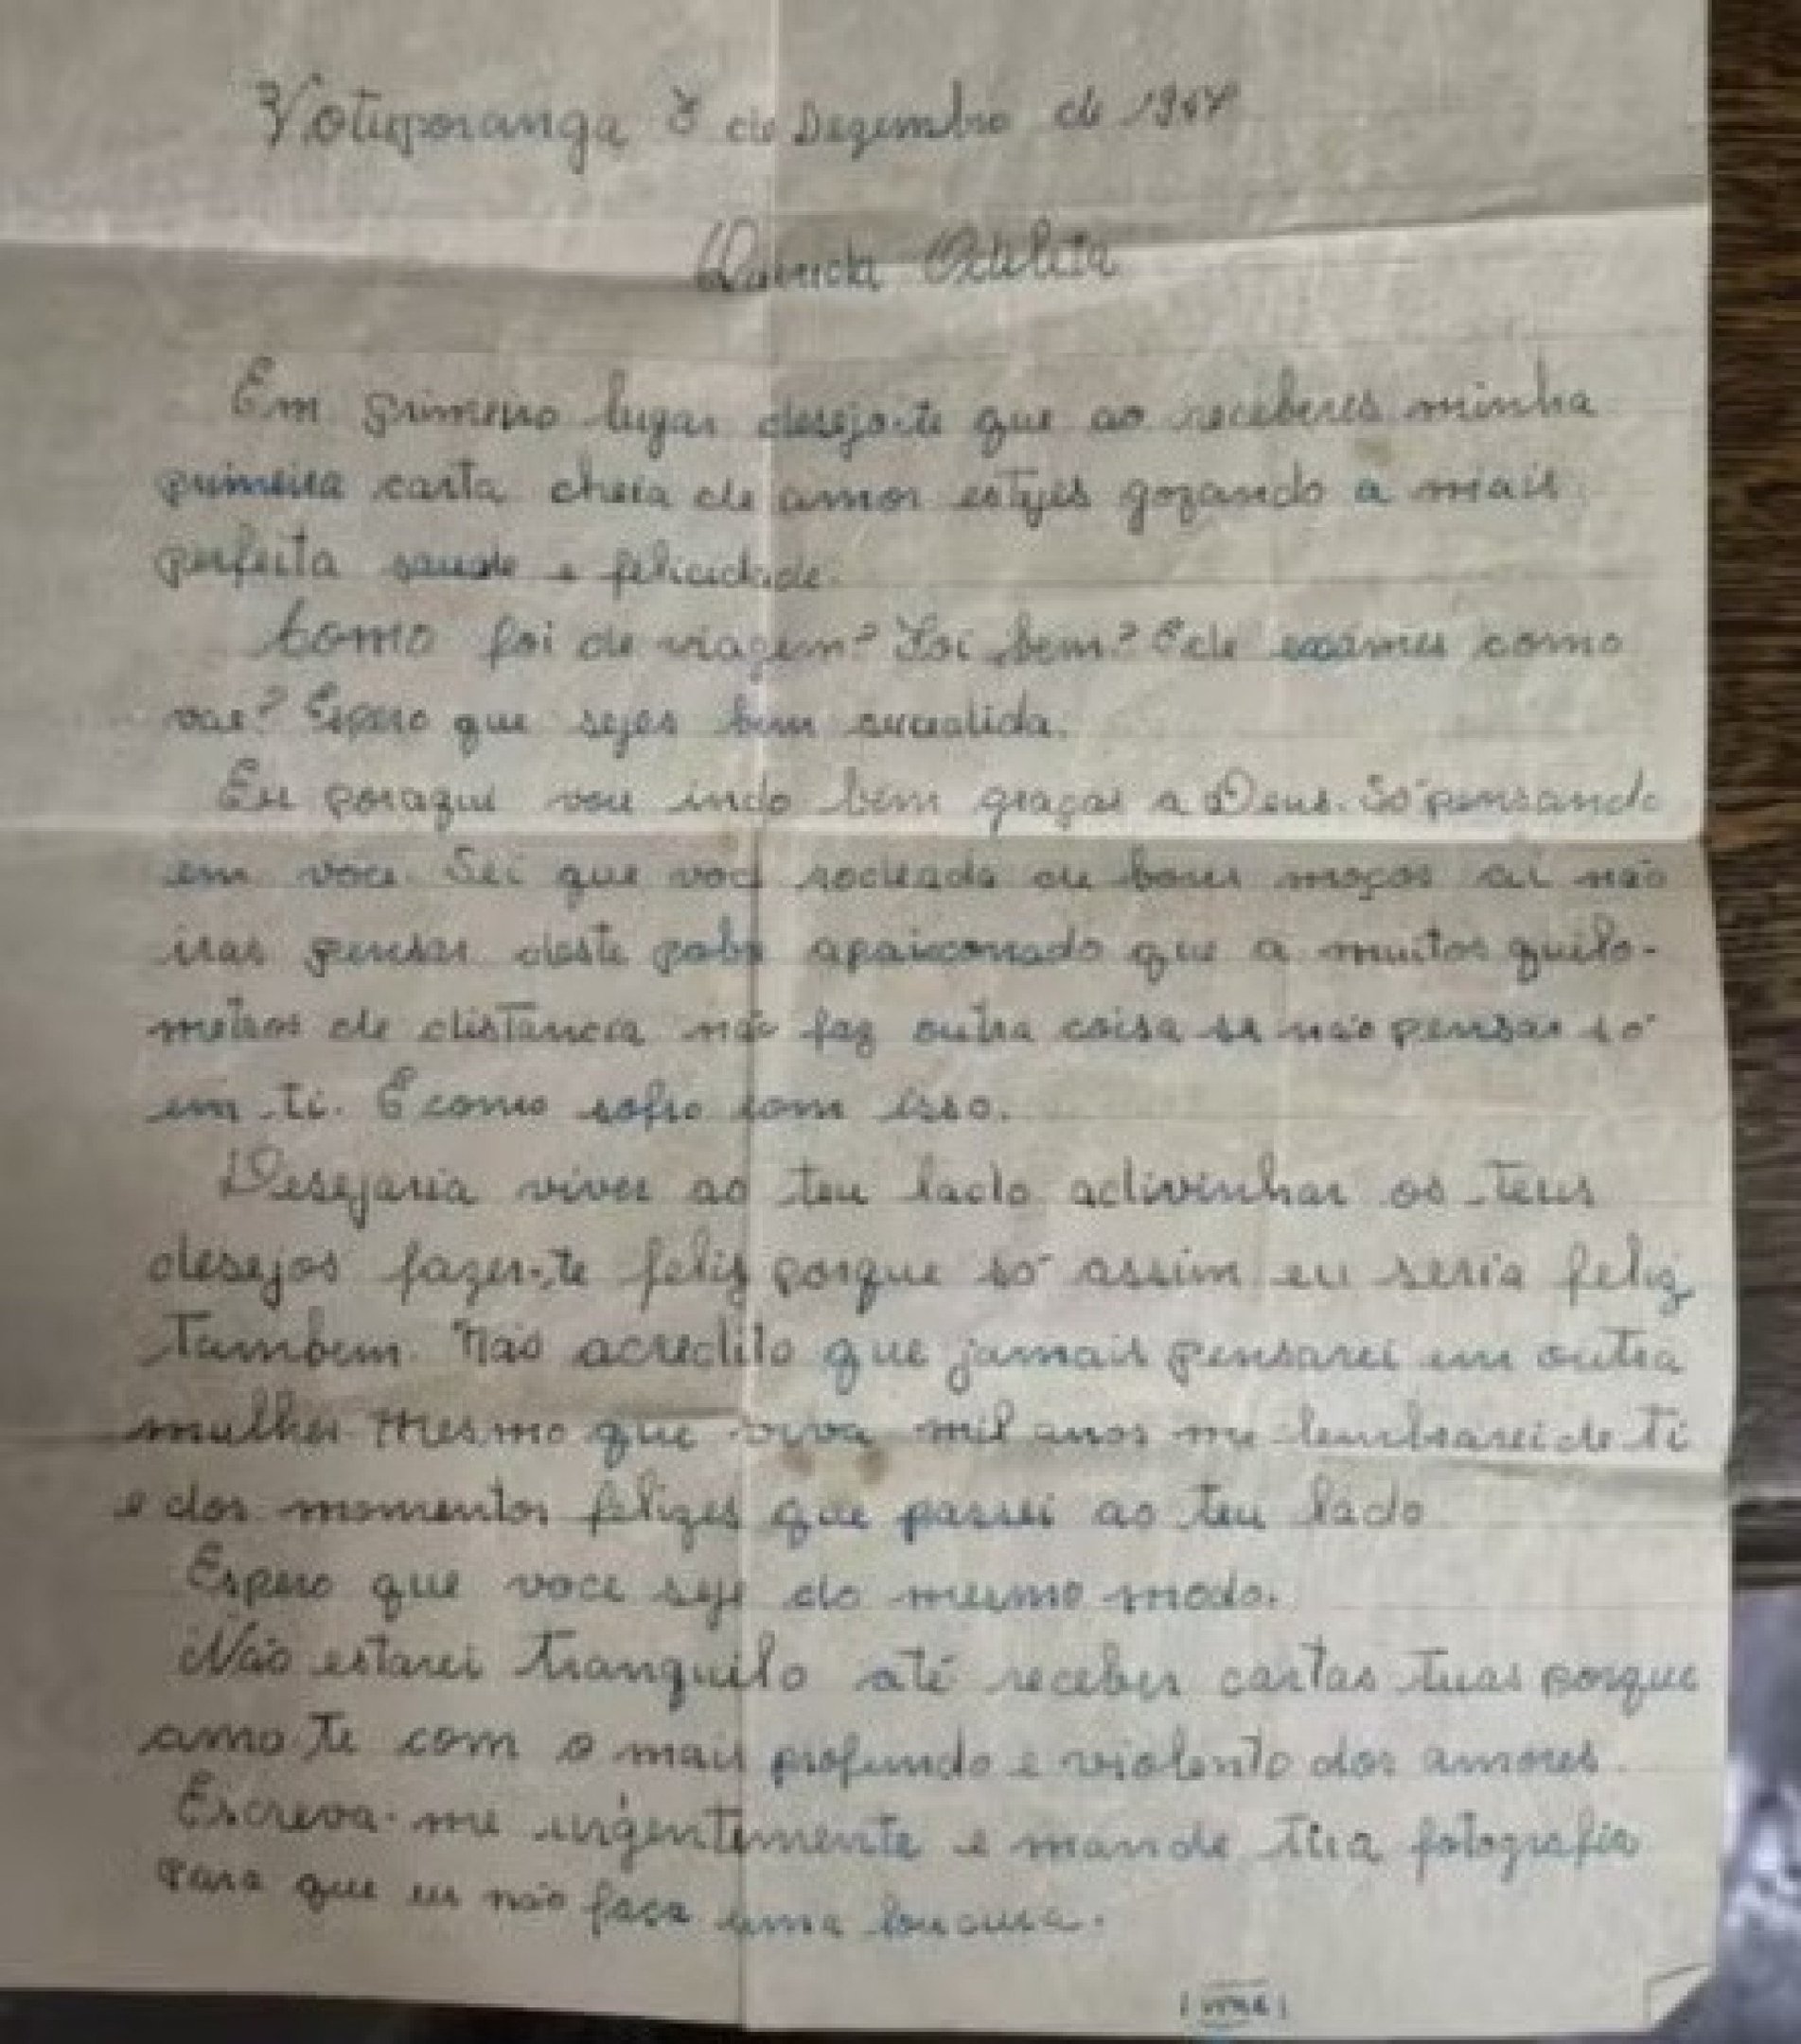 Votuporanga 8 de Dezembro de 1957
Querida Odileta
Em primeiro lugar desejo-te que ao receberes minha
primeira carta cheia de amor estejes gozando a mais
perfeita saude e felicidade.
Como foi de viagem? Foi bem? E de exames como
vae? Espero que sejes bem sucedida.
Eu poraqui vou indo bem graças a Deus. Só pensando
em voce. Sei que voce rodeada de bons moços ai não
iras pensar deste pobre apaixonado que a muitos quilo-
metros de distancia não faz outra coisa se não pensar só
em ti. E como sofro com isso.
Desejaria viver ao teu lado adivinhar os teus
desejos fazer-te feliz porque só assim eu seria feliz
tambem. Não acredito que jamais pensarei em outra
mulher. Mesmo que viva mil anos me lembrarei de ti
e dos momentos felizes que passei ao teu lado
Espero que voce seje do mesmo modo.
Não estarei tranquilo até receber cartas tuas porque
amo te com o mais profundo e violento dos amores.
Escreva-me urgentemente e mande tira fotografia
para que eu não faça uma loucura.